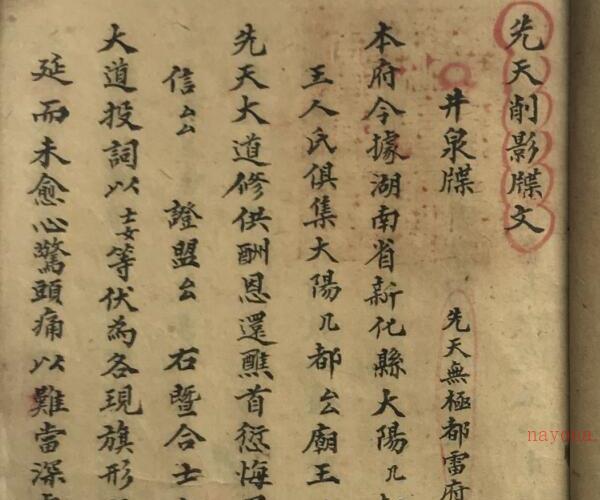 先天削影牒文
井泉牒 先天無極都雷府
本府今據湖南省新化縣大陽几
王人氏俱集大陽几都厶廟王
先天大道修供酬恩還醮首愆悔
信厶厶 證盟厶 右暨合士
大道投詞以士女等伏為各現旗形
延而未愈心驚頭痛以難當深
nayona.